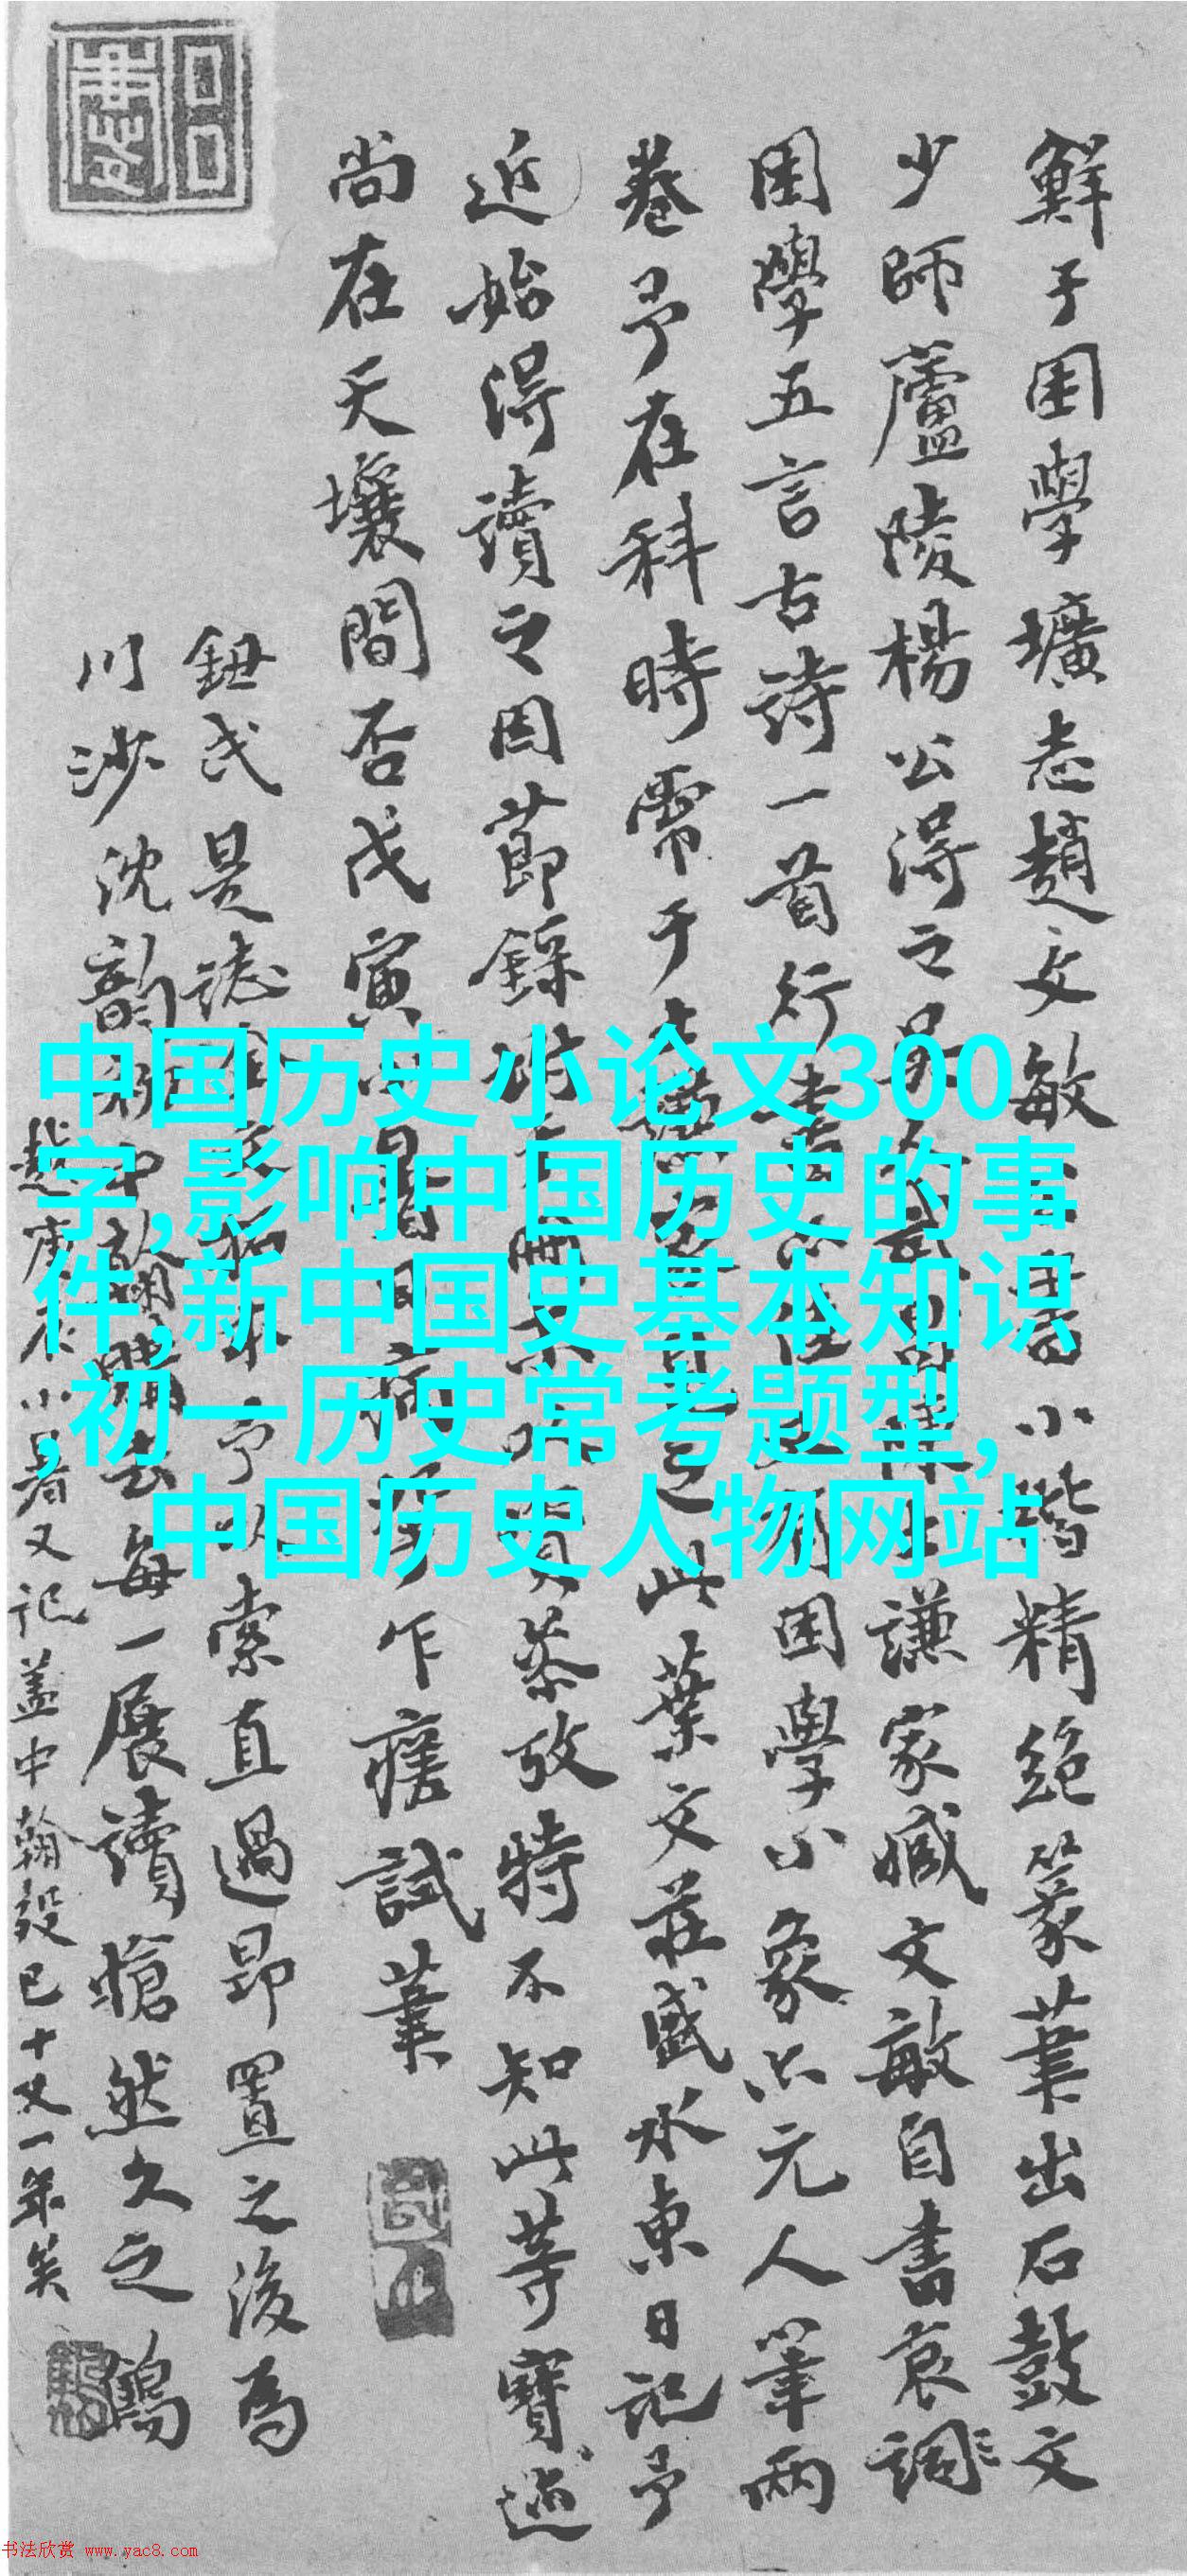 鮮于困學壙志趙文敏
小楷精絕篆筆出石鼓文
少師蘆陵楊公得之
謙家藏文敏自書哀詞
困學五言古詩一首行書
困學小象六元人筆兩
卷予在科時常于
此葉文莊盛水東日記予
近始得讀之因節錄
茶攷特不知此等寶迹
尚在天壤間否戊寅
乍瘥試筆
鈕氏是誌
予以索直過昂置之後為
川沙沈韵
購去每一展讀愴然久之鶴
庚辰小暑又記蓋中翰歿已十又一年矣
中国历史小论文300
字,影响中国历史的事
件,新中国史基本知识
,初一历史常考题型,
中国历史人物网站
书法欣赏 www.yac8.com